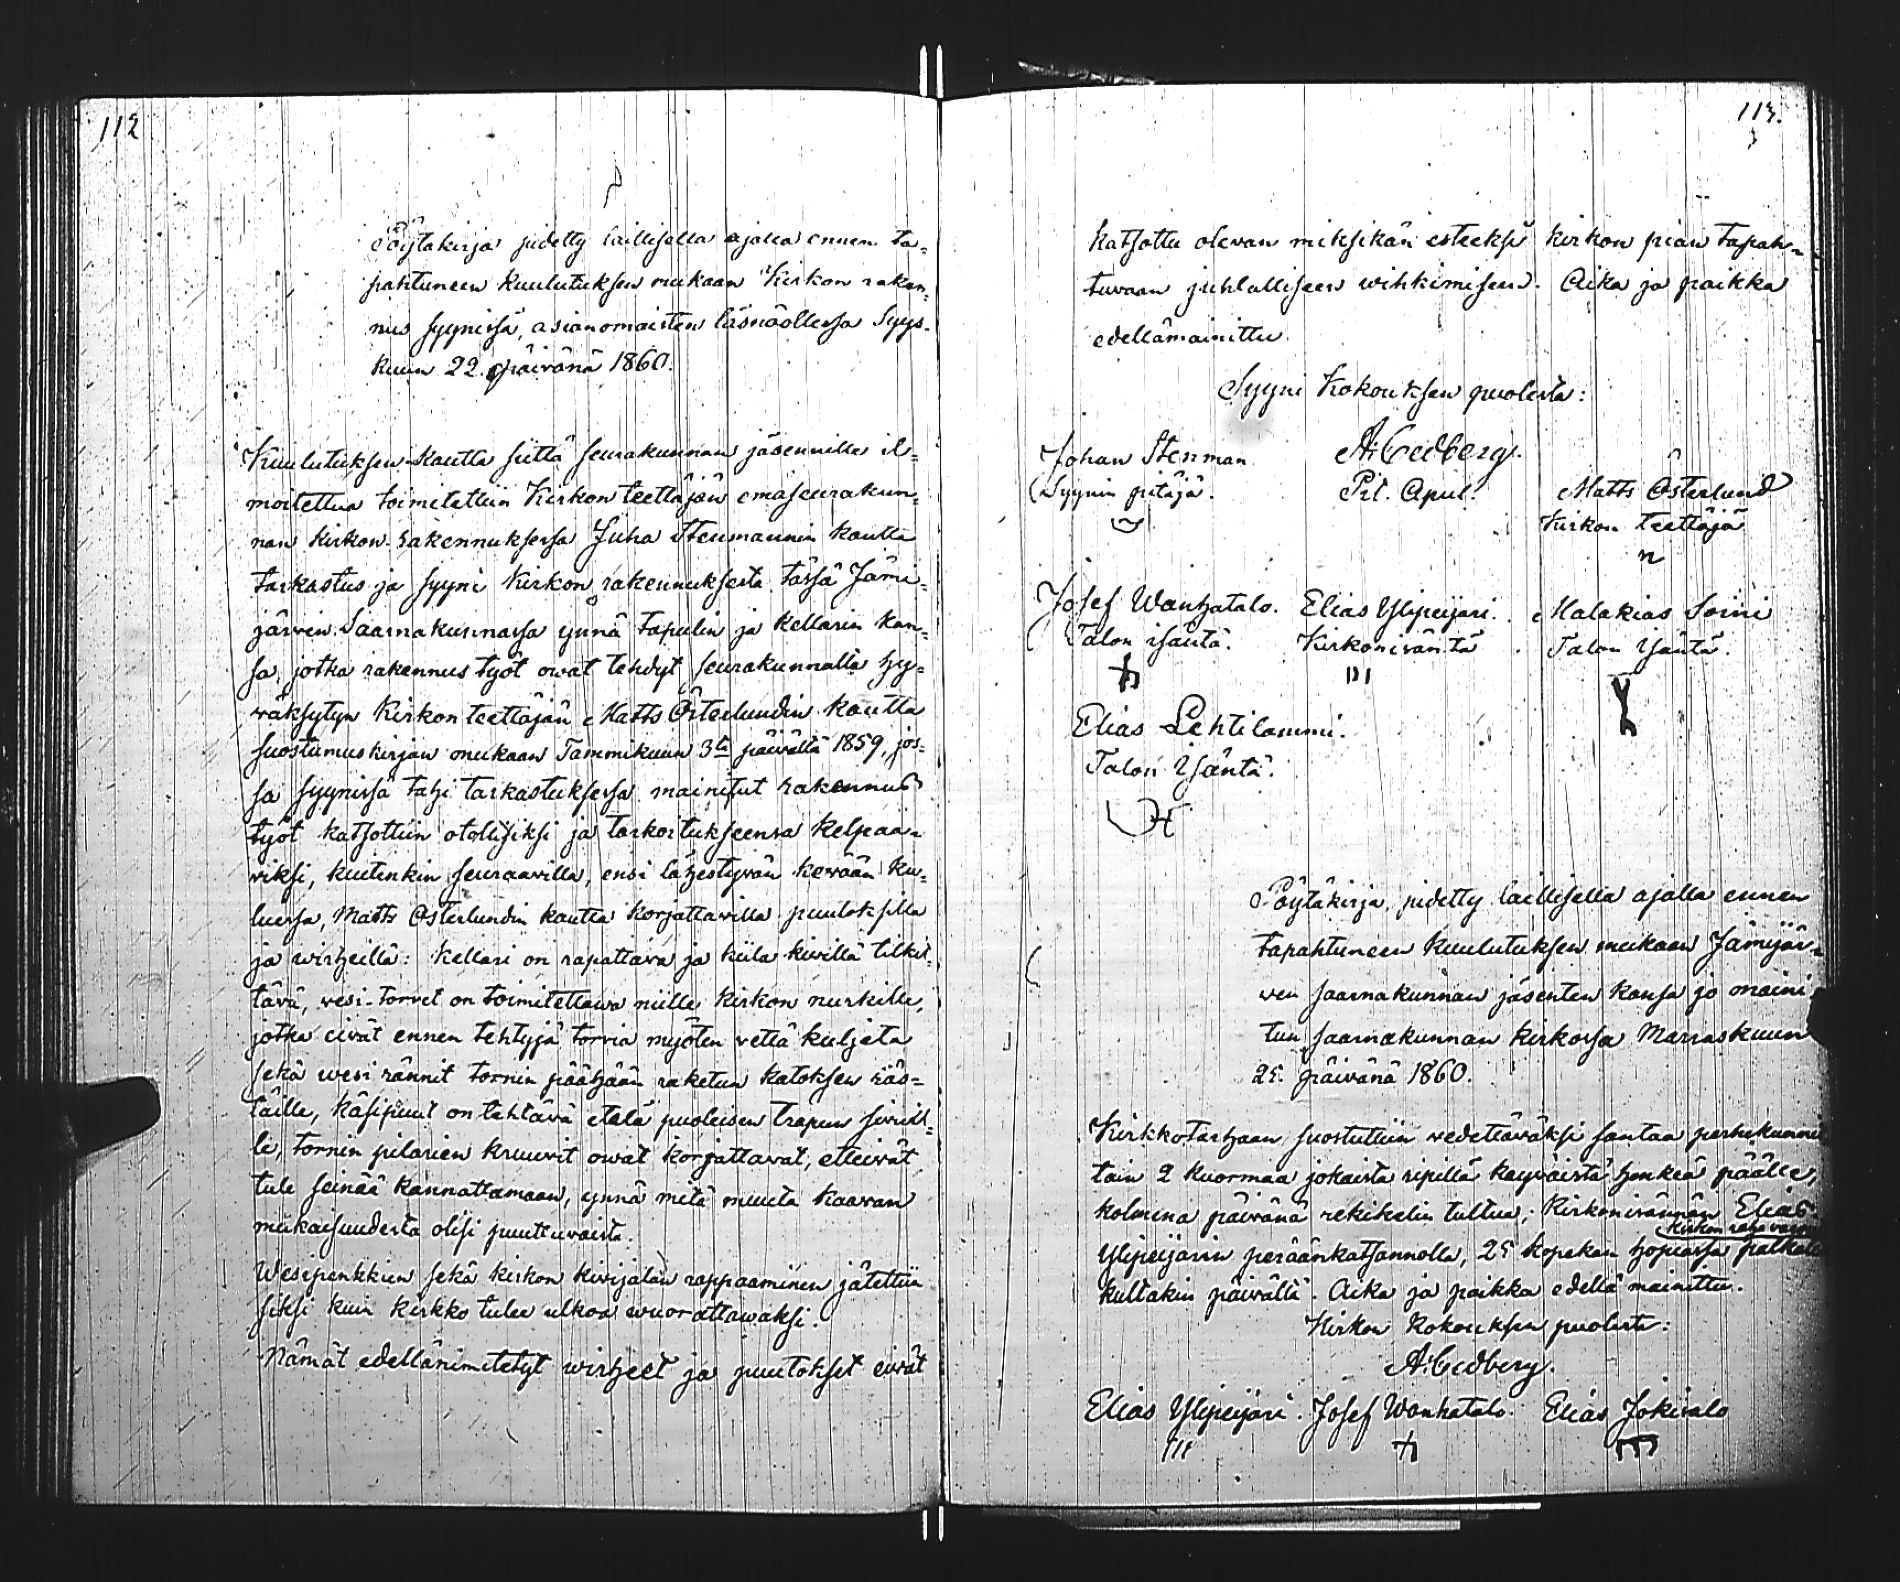 112
Pöytäkirja pidetty laillisella ajalla ennen ta=
pahtuneen kuulutuksen mukaan Kirkon raken=
nus syynissä, asianomaisten läsnäollessa Syys-
kuun 22. päivänä 1860.
Kuulutuksen kautta siittä seurakunnan jäsennille il=
moitettua toimitettiin Kirkon teettäjän emäseurakun=
nan Kirkon rakennuksessa Juha Stenmannin kautta
tarkastus ja syyni Kirkon rakennuksesta tässä Jämi=
järven Saarnakunnassa ynnä tapulin ja kellarin kan=
sa, jotka rakennus työt owat tehdyt seurakunnalta hy=
wäksytyn Kirkon teettäjän Matts Österlundin kautta
suostumuskirjan mukaan Tammikuun 3ta päivältä 1859, jos=
sa syynissä tahi tarkastuksessa mainitut rakennus
työt katsottiin otollisiksi ja tarkoitukseensa kelpaa=
viksi, kuitenkin seuraavilla, ensi lähestyvän kevään ku=
luessa, Matts Österlundin kautta korjattavilla puutoksilla
ja wirheillä: Kellari on rapattava ja kiila kivillä tilkit=
tävä, vesi-torvet on toimitettawa niille Kirkon nurkille,
jotka eivät ennen tehtyjä torvia myöten vettä kuljeta
sekä wesi rännit tornin päähään raketun katoksen räs=
täille, käsipuut on tehtävä etelä puoleisen trapun sivuil=
le, tornin pilarien kruuvit owat korjattavat, etteivät
tule seinää kannattamaan, ynnä mitä muuta kaavan
mukaisuudesta olisi puuttuvaista.
Wesipenkkien sekä kirkon kivijalan rappaaminen jätettiin
siksi kuin kirkko tulee ulkoa wuorattawaksi.
Nämät edellänimitetyt wirheet ja puutokset eivät
113.
katsottu olevan miksikän esteeksi kirkon pian tapah=
tuvaan juhlalliseen wihkimiseen. Aika ja paikka
edellämainittu.
Syyni Kokouksen puolesta:
Johan Stenman A. Cedberg. Matts Österlund
Syynin pitäjä. Pit. Apul. Kirkon teettäjä
Josef Wanhatalo. Elias Ylipeijari. Malakias Soini
Talon isäntä. Kirkonisäntä Talon Isäntä.
Elias Lehtilammi.
Talon Isäntä.
Pöytäkirja, pidetty laillisella ajalla ennen
tapahtuneen kuulutuksen mukaan Jämijär=
ven saarnakunnan jäsenten kansa jo maini
tun saarnakunnan kirkossa Marraskuun
25. päivänä 1860.
Kirkkotarhaan suostuttiin vedettäväksi santaa perhekunnit
tain 2 kuormaa jokaista ripillä käypäistä henkeä päälle,
kolmena päivänä rekikelin tultua; Kirkonisännän Elias
Kirkon
Ylipeijarin peräänkatsannolla, 25 kopekan hopeassa
kultakin päivältä. Aika ja paikka edellä mainittu.
Kirkon Kokouksen puolesta:
A. Cedberg.
Elias Ylipeijari. Josef Wanhatalo. Elias Jokisalo